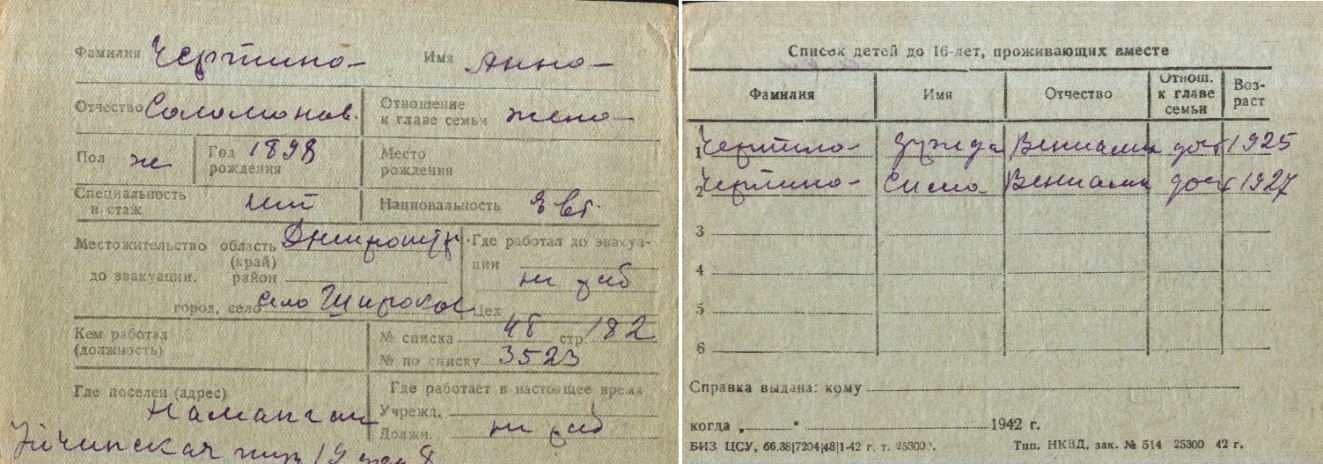 Фамилия Чертина Имя Анна
Отчество Саломонов. Отношение к главе семьи жена
Пол ж Год рождения 1898 Место рождения
Специальность и стаж нет Национальность Евр.
Местожительство область (край) Днепропетр Где работал до эвакуации
до эвакуации. район не раб
город, село село Широкое Цех
Кем работал (должность) № списка 48 стр. 182
№ по списку 3523
Где поселен (адрес) Где работает в настоящее время
Наманган Учрежд.
Должн. не раб
Уйчинская
Список детей до 16-лет, проживающих вместе
Фамилия Имя Отчество Отнош. к главе семьи Возраст
1 Чертина Вениами доч 1925
2 Чертина Сима Вениами доч 1927
3
4
5
6
Справка выдана: кому
когда „ " 1942 г.
БИЗ ЦСУ, 66.38|7204|48|1-42 г. т. 25300. Тип. НКВД, зак. № 514 25300 42 г.